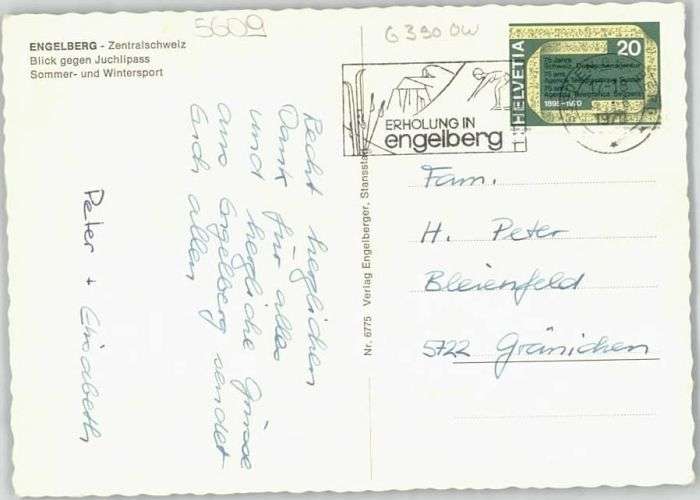 5609
G 390 OW
ENGELBERG - Zentralschweiz
Blick gegen Juchlipass
Sommer- und Wintersport
HELVETIA
20
75 Jahre
1895-1970
ERHOLUNG IN
engelberg
Recht herzlichen
Dank für alles
und herzliche Grüsse
aus Engelberg sendet
Euch allen
Peter + Elisabeth
Nr. 6775 Verlag Engelberger, Stansstad
Fam.
H. Peter
Bleienfeld
5722 Gränichen